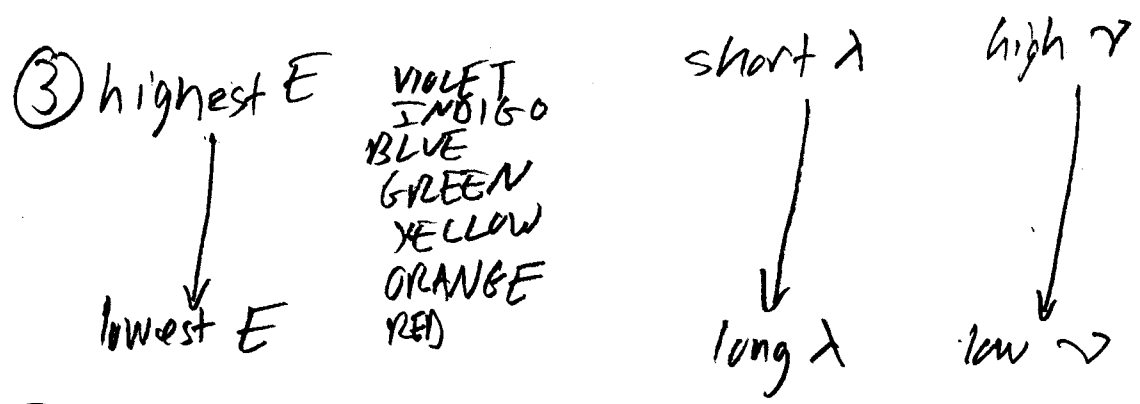 ③ highest E
VIOLET
INDIGO
BLUE
GREEN
YELLOW
ORANGE
RED
lowest E
short λ
long λ
high ν
low ν